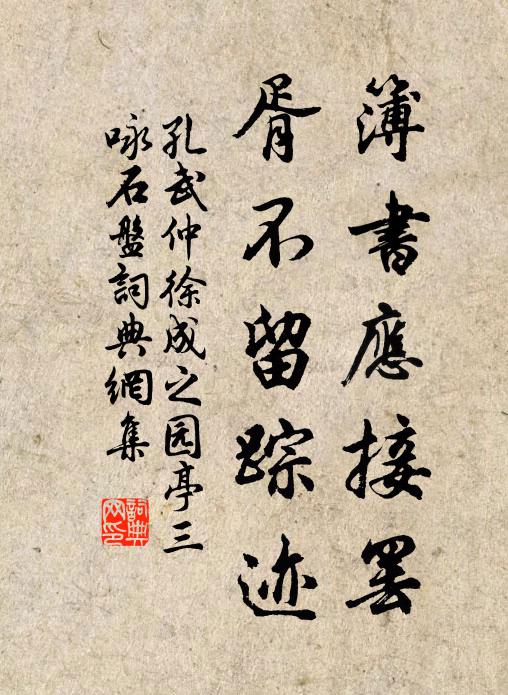 簿書應接罢
胥不留踪迹
孔武仲徐成之园亭三
咏石盤詞典網集
詞典
网印